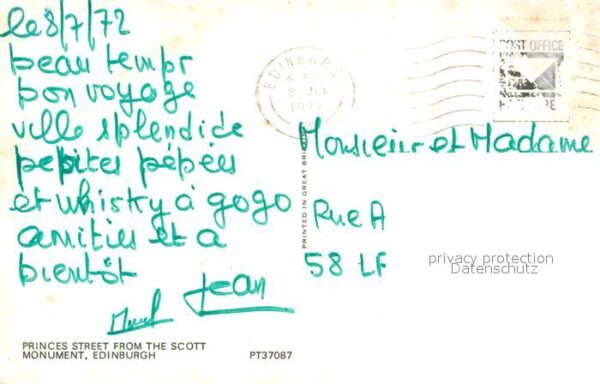 le 8/7/72
beau temps
bon voyage
ville splendide
petites pépées
et whisky à gogo
amitiés et a
bientôt
Jean
PRINCES STREET FROM THE SCOTT
MONUMENT, EDINBURGH
PT37087
PRINTED IN GREAT BRITAIN
EDINBURGH
8 JUL
1972
POST OFFICE
Monsieur et Madame
Rue A
58 LF
privacy protection
Datenschutz